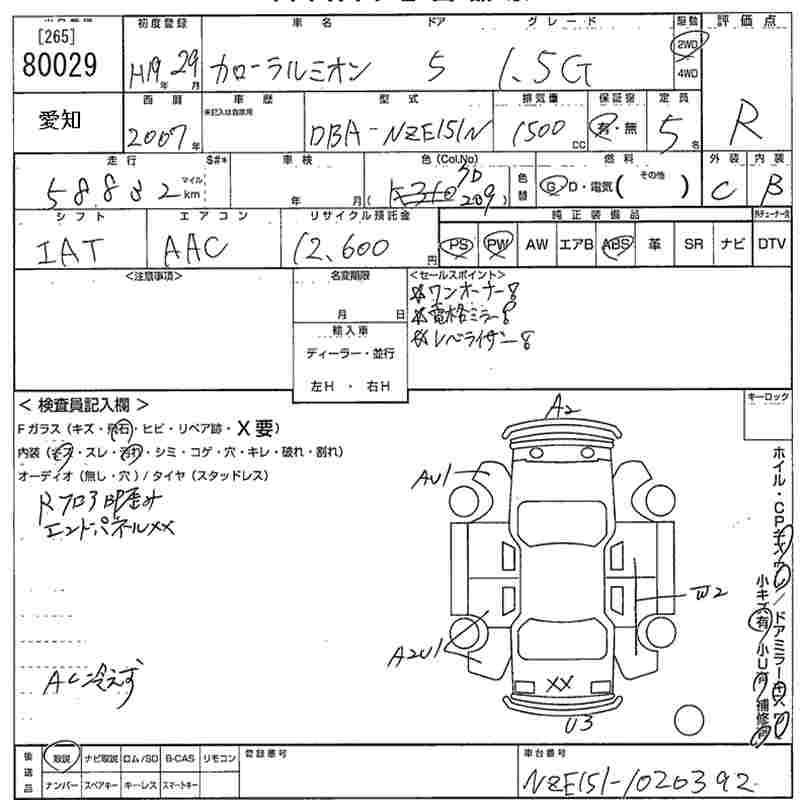 [265]
80029
初度登録 車名 ドア グレード 駆動 評価点
H19年 29月 カローラルミオン 5 1.5G 2WD 4WD R
愛知
西暦 車歴 型式 排気量 保証書 定員
※記入は自家用以外
2007年 DBA-NZE151N 1500cc 有・無 5名
走行 S#* 車検 色(Col.No) 燃料 外装 内装
58832 マイル km 年 月 ( 209 ) 色替 G D・電気( その他 ) C B
シフト エアコン リサイクル預託金 純正装備品
IAT AAC 12,600円 PS PW AW エアB ABS 革 SR ナビ DTV
<注意事項> 名変期限 <セールスポイント>
月 日
☆ワンオーナー!
☆電格ミラー!
☆レベライザー!
輸入車
ディーラー・並行
左H ・ 右H
< 検査員記入欄 >
Fガラス(キズ・飛石・ヒビ・リペア跡・X要)
内装(キズ・スレ・汚れ・シミ・コゲ・穴・キレ・破れ・割れ)
オーディオ(無し・穴)/タイヤ(スタッドレス)
Rフロア凹歪み
エンドパネルXX
AC冷えず
キーロック
A2
AU1
W2
A2U1
XX
U3
小キズ有 小U有 補修有
後送品 取説 ナビ取説 ロム/SD B-CAS リモコン
ナンバー スペアキー キーレス スマートキー
登録番号
車台番号
NZE151-1020392